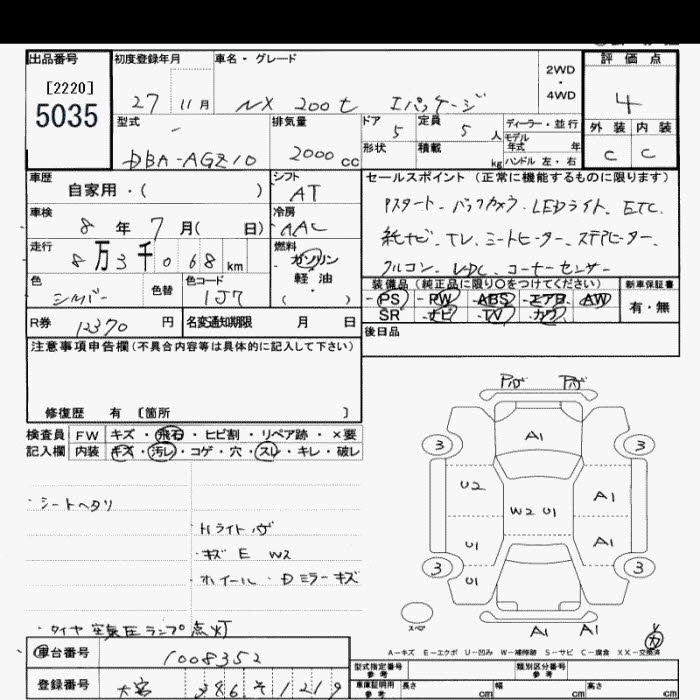 出品番号 初度登録年月 車名・グレード 評価点
[2220] 5035
27 11月 NX 200t Iパッケージ
2WD・4WD
4
型式 排気量 ドア 定員 ディーラー・並行 外装 内装
DBA-AGZ10 2000cc 5 5人 モデル年式 年
形状 積載 kg ハンドル 左・右 C C
車歴 自家用・( ) シフト AT
セールスポイント (正常に機能するものに限ります)
車検 8年 7月( 日) 冷房 AAC
Pスタート、バックカメラ、LEDライト、ETC、
走行 8万3千068km 燃料 ガソリン 軽油 ( )
純ナビ、TV、シートヒーター、ステアヒーター、
クルコン、コーナーセンサー
色 シルバー 色替 色コード 1J7
装備品 (純正品に限り○をつけてください) 新車保証書
PS PW ABS エアB AW 有・無
SR ナビ TV カワ
R券 12370円 名変通知期限 月 日
後日品
注意事項申告欄(不具合内容等は具体的に記入して下さい)
修復歴 有 〔箇所 〕
検査員 FW キズ・飛石・ヒビ割・リペア跡・×要
記入欄 内装 キズ・汚レ・コゲ・穴・スレ・キレ・破レ
・シートヘタリ
Hライト
・キズ E W2
・ホイール・Dミラーキズ
・タイヤ空気圧ランプ点灯
A1
3 3
U2 A1
W2 U1
U1 A1
3 3
U1
スペア
A1 A1
A-キズ E-エクボ U-凹み W-補修跡 S-サビ C-腐食 XX-交換済
車台番号 1008352
登録番号 大宮 386 そ 1219
型式指定番号 参考 類別区分番号 参考
車庫証明用 参考 長さ cm 幅 cm 高さ cm